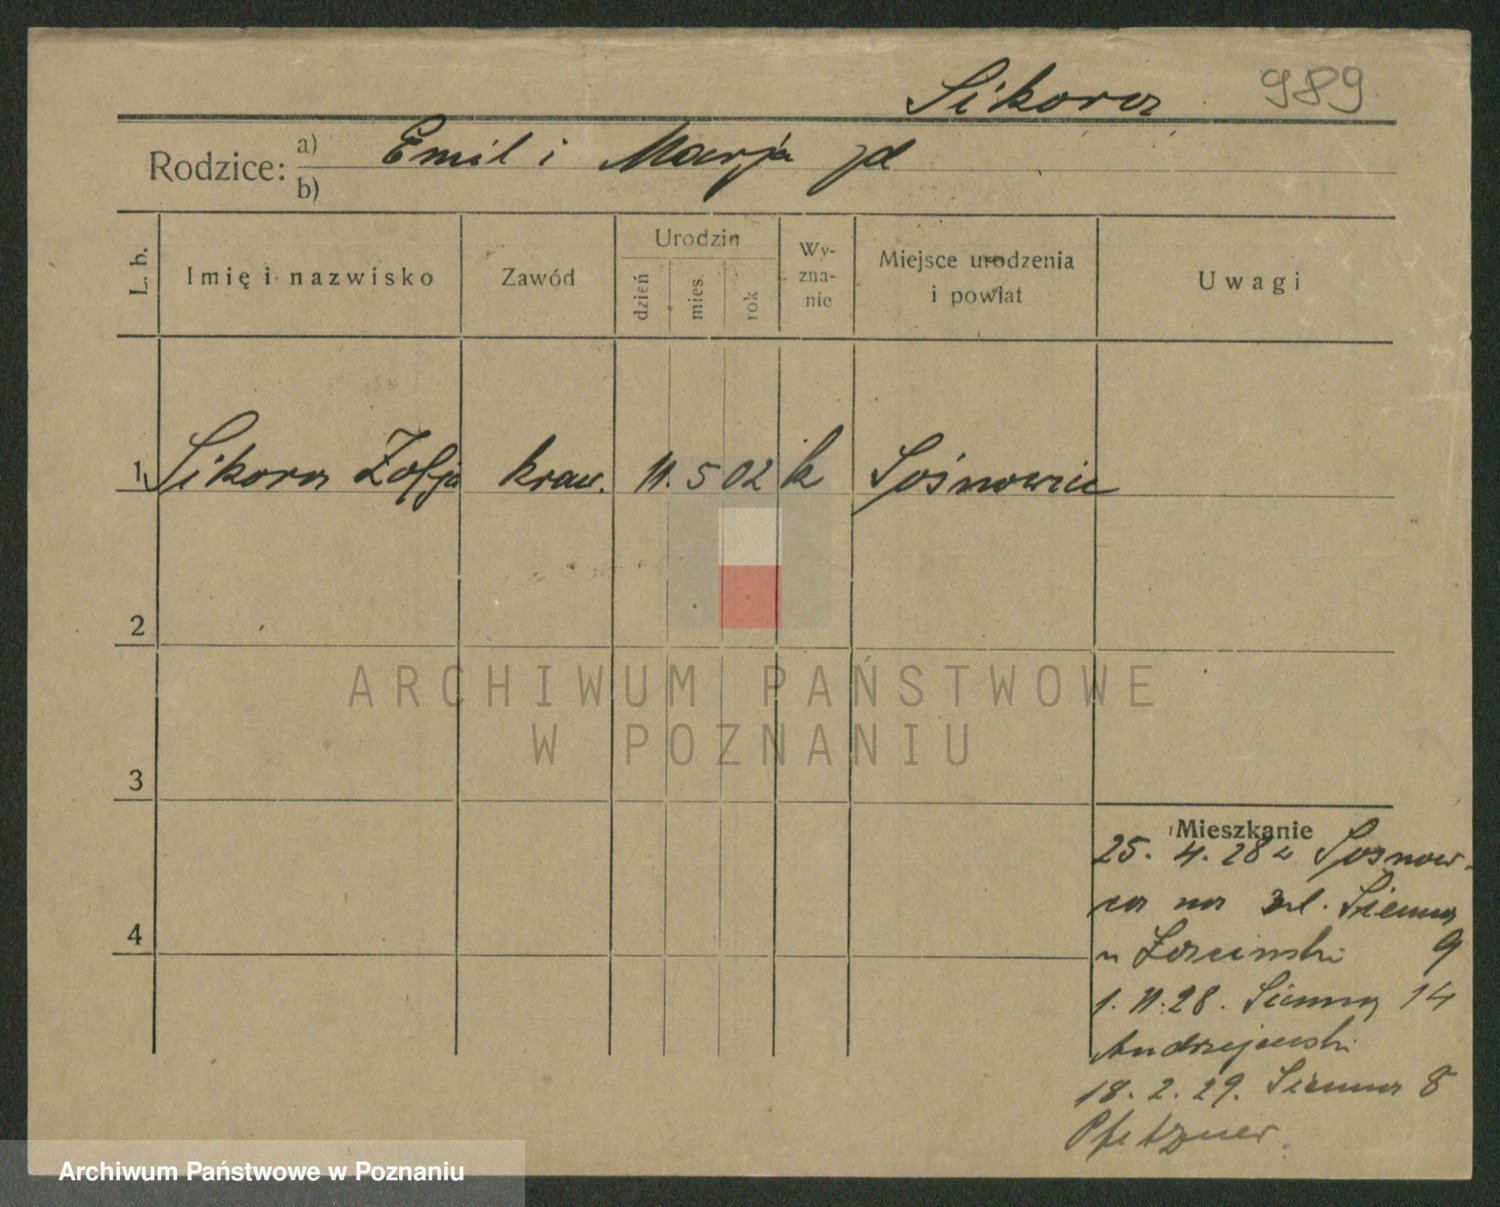 Sikora 989
Rodzice: a) Emil i Marja
b)
L. b. Imię i nazwisko Zawód Urodzin dzień mies. rok Wy-zna-nie Miejsce urodzenia i powiat Uwagi
1 Sikora Zofja kraw. 11. 5 02 k Sosnowiec
2
3
4
Mieszkanie
25. 4. 28 z Sosnow-
ca na ul. Sienna
u 9
1. 11. 28. Sienna 14
Andrzejewski
18. 2. 29. Sienna 8
Pfetzner.
ARCHIWUM PAŃSTWOWE
W POZNANIU
Archiwum Państwowe w Poznaniu